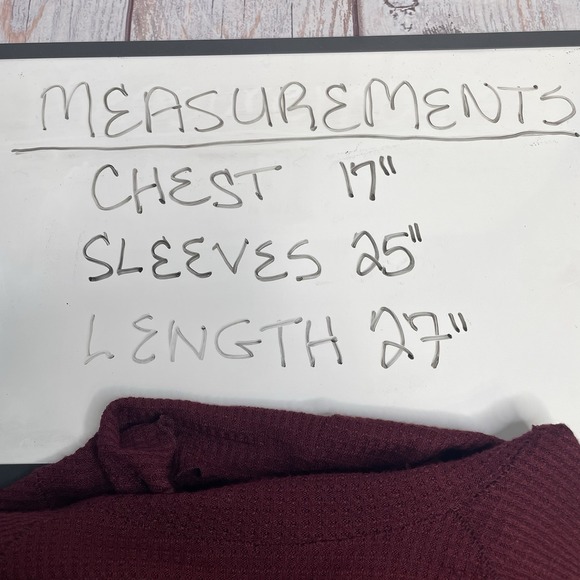 MEASUREMENTS
CHEST 17"
SLEEVES 25"
LENGTH 27"